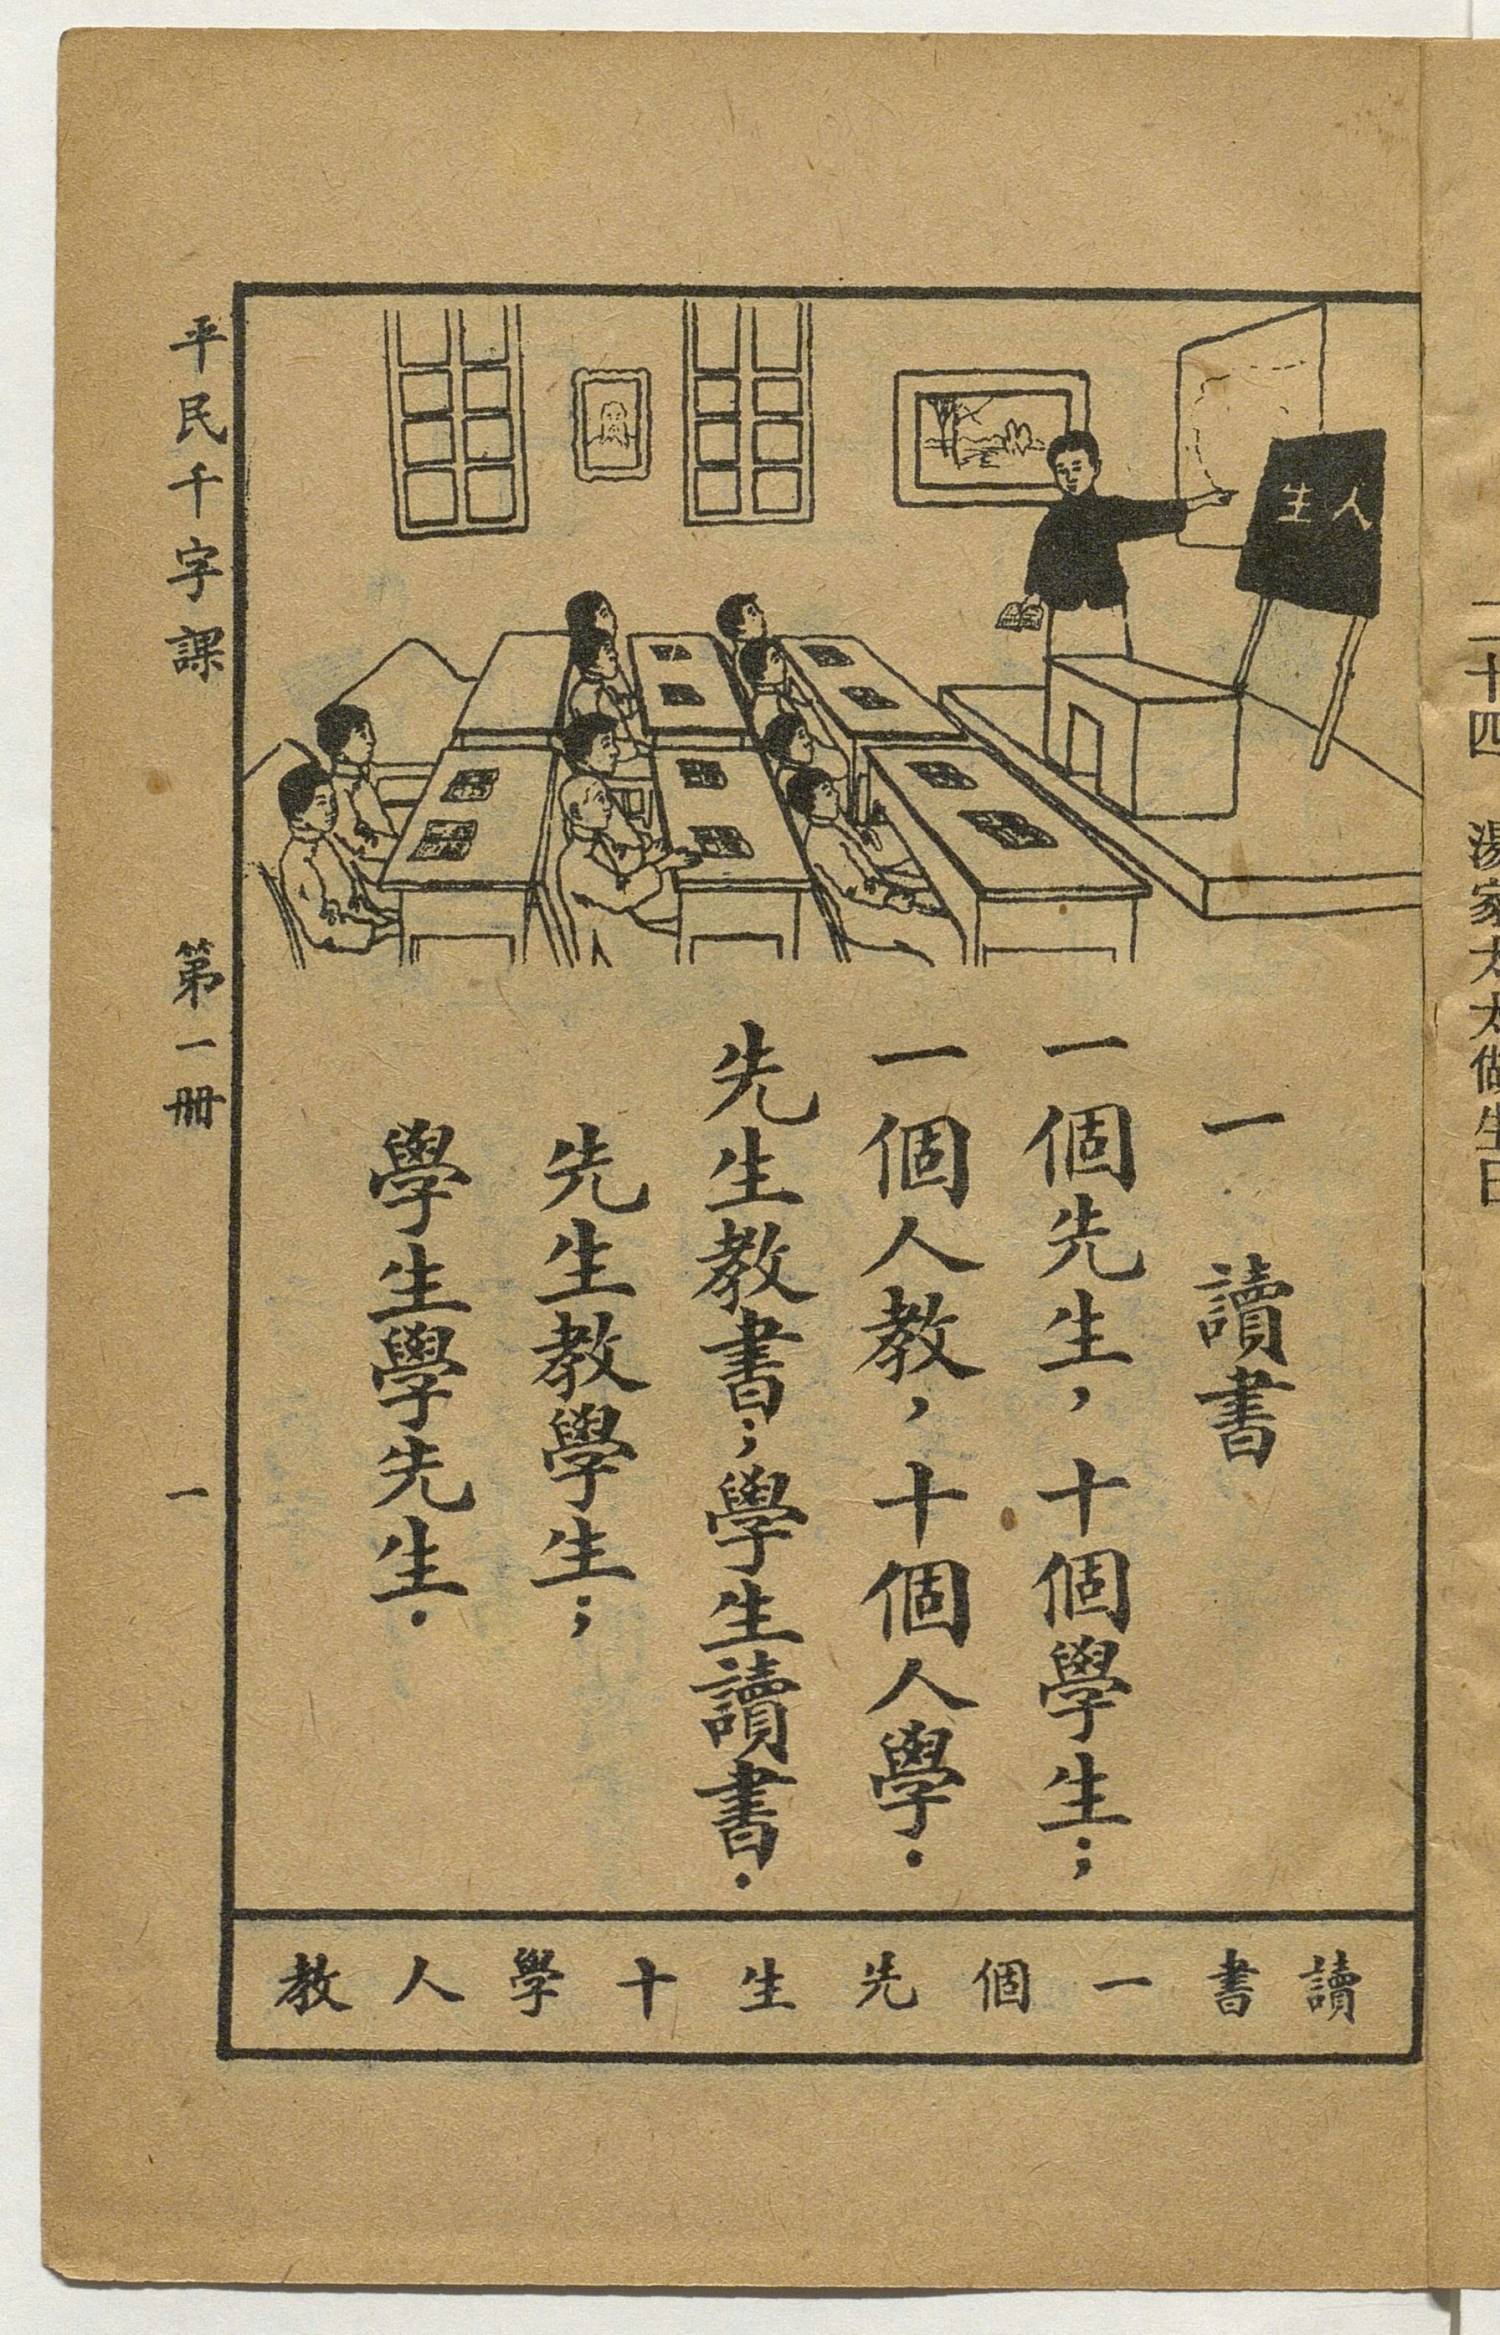 二十四 湯家太太做生日
人生
一 讀書
一個先生,十個學生;
一個人教,十個人學.
先生教書;學生讀書.
先生教學生;
學生學先生.
讀書一個先生十學人教
平民千字課 第一冊 一